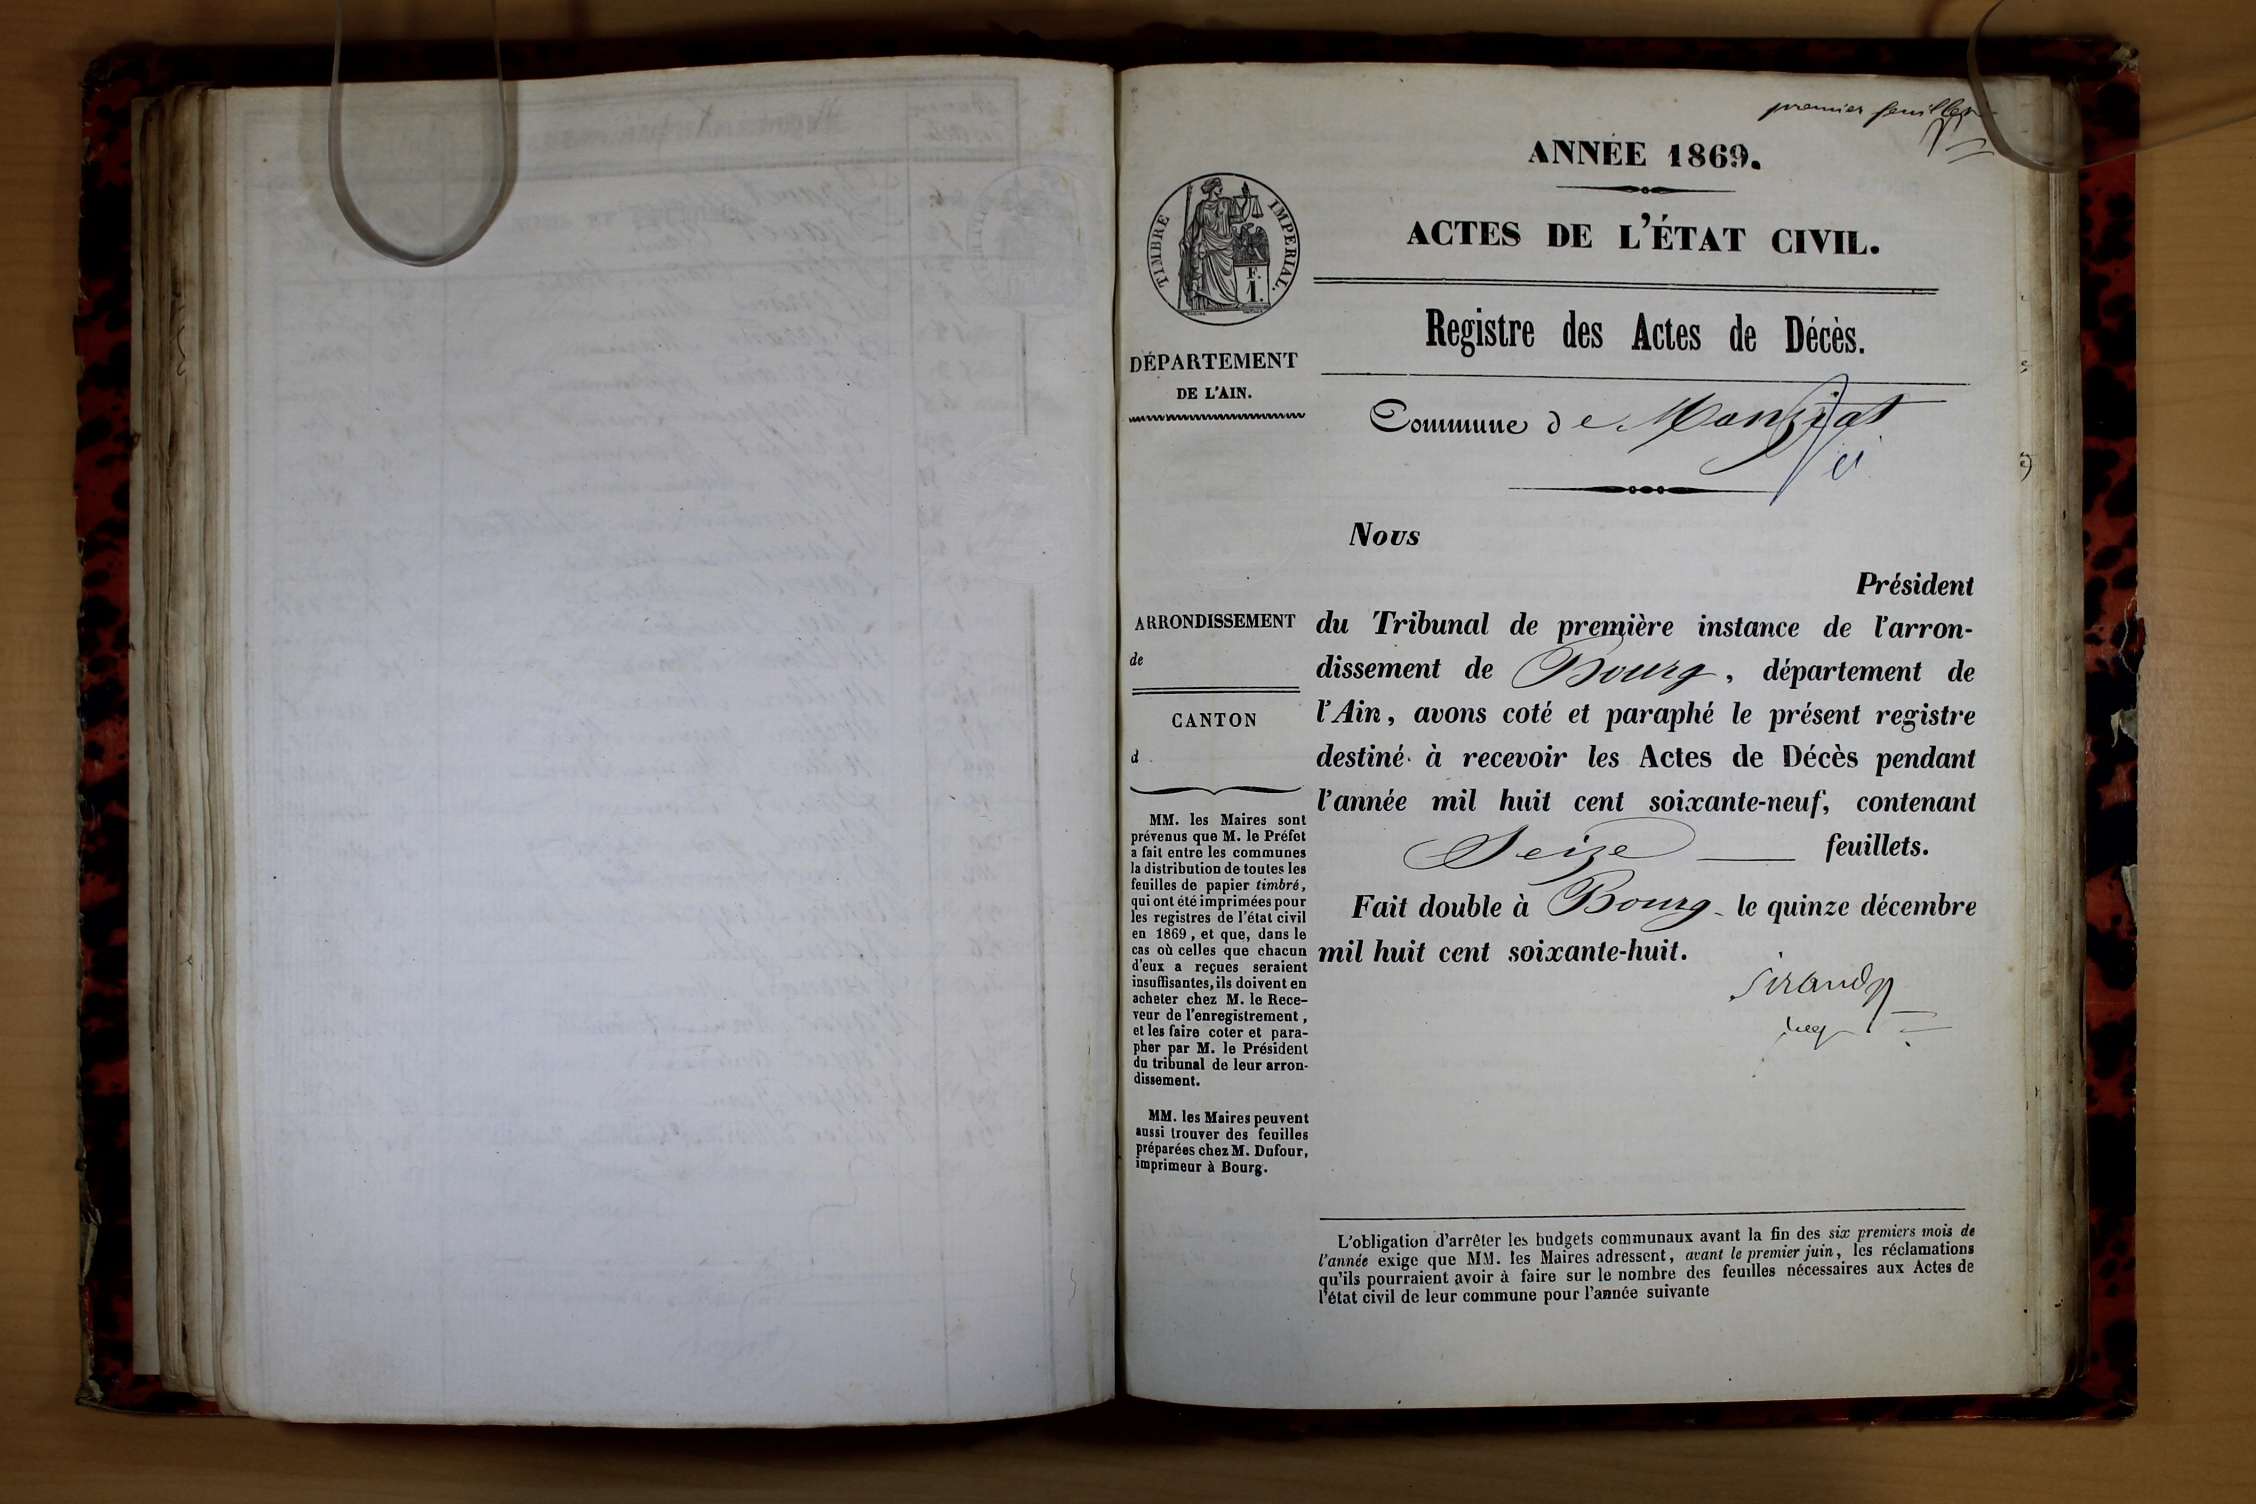 premier feuillet
ANNÉE 1869.
ACTES DE L'ÉTAT CIVIL.
TIMBRE IMPERIAL.
F.
1.
Registre des Actes de Décès.
DÉPARTEMENT
DE L'AIN.
Commune de
Nous
Président
ARRONDISSEMENT
de
CANTON
d
du Tribunal de première instance de l'arron-
dissement de Bourg, département de
l'Ain, avons coté et paraphé le présent registre
destiné à recevoir les Actes de Décès pendant
l'année mil huit cent soixante-neuf, contenant
Seize feuillets.
Fait double à Bourg le quinze décembre
mil huit cent soixante-huit.
MM. les Maires sont
prévenus que M. le Préfet
a fait entre les communes
la distribution de toutes les
feuilles de papier timbré,
qui ont été imprimées pour
les registres de l'état civil
en 1869, et que, dans le
cas où celles que chacun
d'eux a reçues seraient
insuffisantes, ils doivent en
acheter chez M. le Rece-
veur de l'enregistrement,
et les faire coter et para-
pher par M. le Président
du tribunal de leur arron-
dissement.
MM. les Maires peuvent
aussi trouver des feuilles
préparées chez M. Dufour,
imprimeur à Bourg.
L'obligation d'arrêter les budgets communaux avant la fin des six premiers mois de
l'année exige que MM. les Maires adressent, avant le premier juin, les réclamations
qu'ils pourraient avoir à faire sur le nombre des feuilles nécessaires aux Actes de
l'état civil de leur commune pour l'année suivante